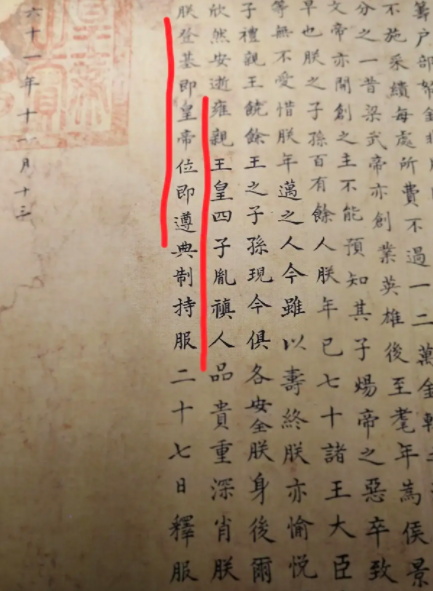 籌户部帑金非
不施采繢每處所費不過一二萬金較
分之一昔梁武帝亦創業英雄後至耄年為侯景
文帝亦開創之主不能預知其子煬帝之惡卒致
早也朕之子孫百有餘人朕年已七十諸王大臣
等無不愛惜朕年邁之人今雖以壽終朕亦愉悦
子禮親王饒餘王之子孫現今俱各安全朕身後爾
欣然安逝雍親王皇四子胤禛人品貴重深肖朕
朕登基即皇帝位即遵典制持服二十七日釋服
六十一年十一月十三